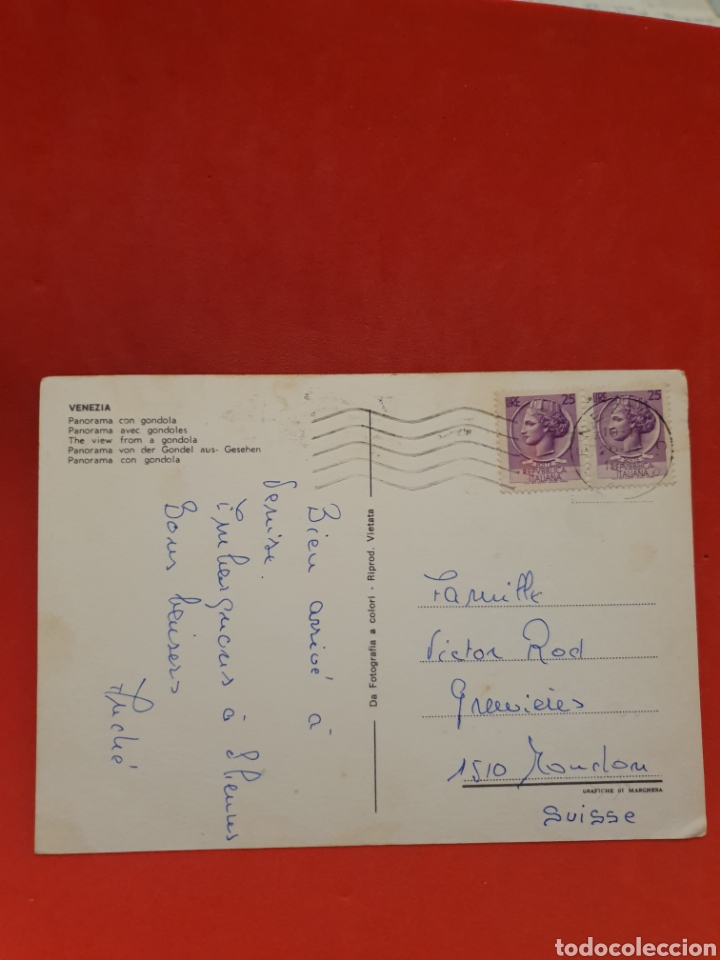 VENEZIA
Panorama con gondola
Panorama avec gondoles
The view from a gondola
Panorama von der Gondel aus- Gesehen
Panorama con gondola
LIRE 25
REPVBBLICA
ITALIANA
LIRE 25
REPVBBLICA
ITALIANA
Da Fotografia a colori - Riprod. Vietata
Bien arrivé à
Venise.
Embarquons à 8 heures
Bons baisers
Famille
Victor Rod
1510 Moudon
GRAFICHE DI MARGHERA
Suisse
todocoleccion